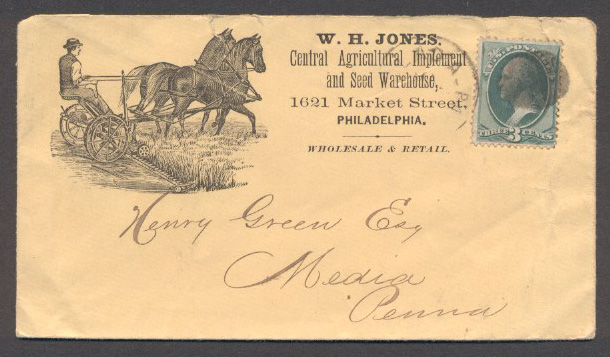 W. H. JONES.
Central Agricultural Implement
and Seed Warehouse,
1621 Market Street,
PHILADELPHIA.
WHOLESALE & RETAIL.
U.S. POSTAGE
THREE 3 CENTS
Henry Green Esq
Media
Penna